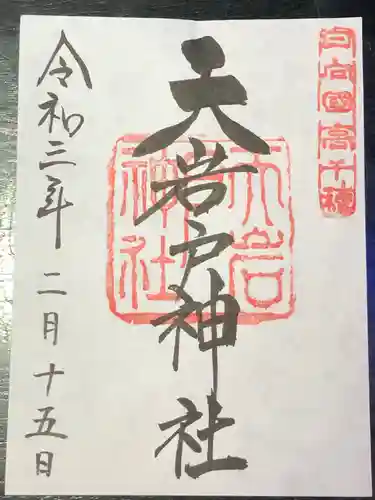 日向國高千穂
天岩戸神社
天岩戸神社
令和三年 二月十五日